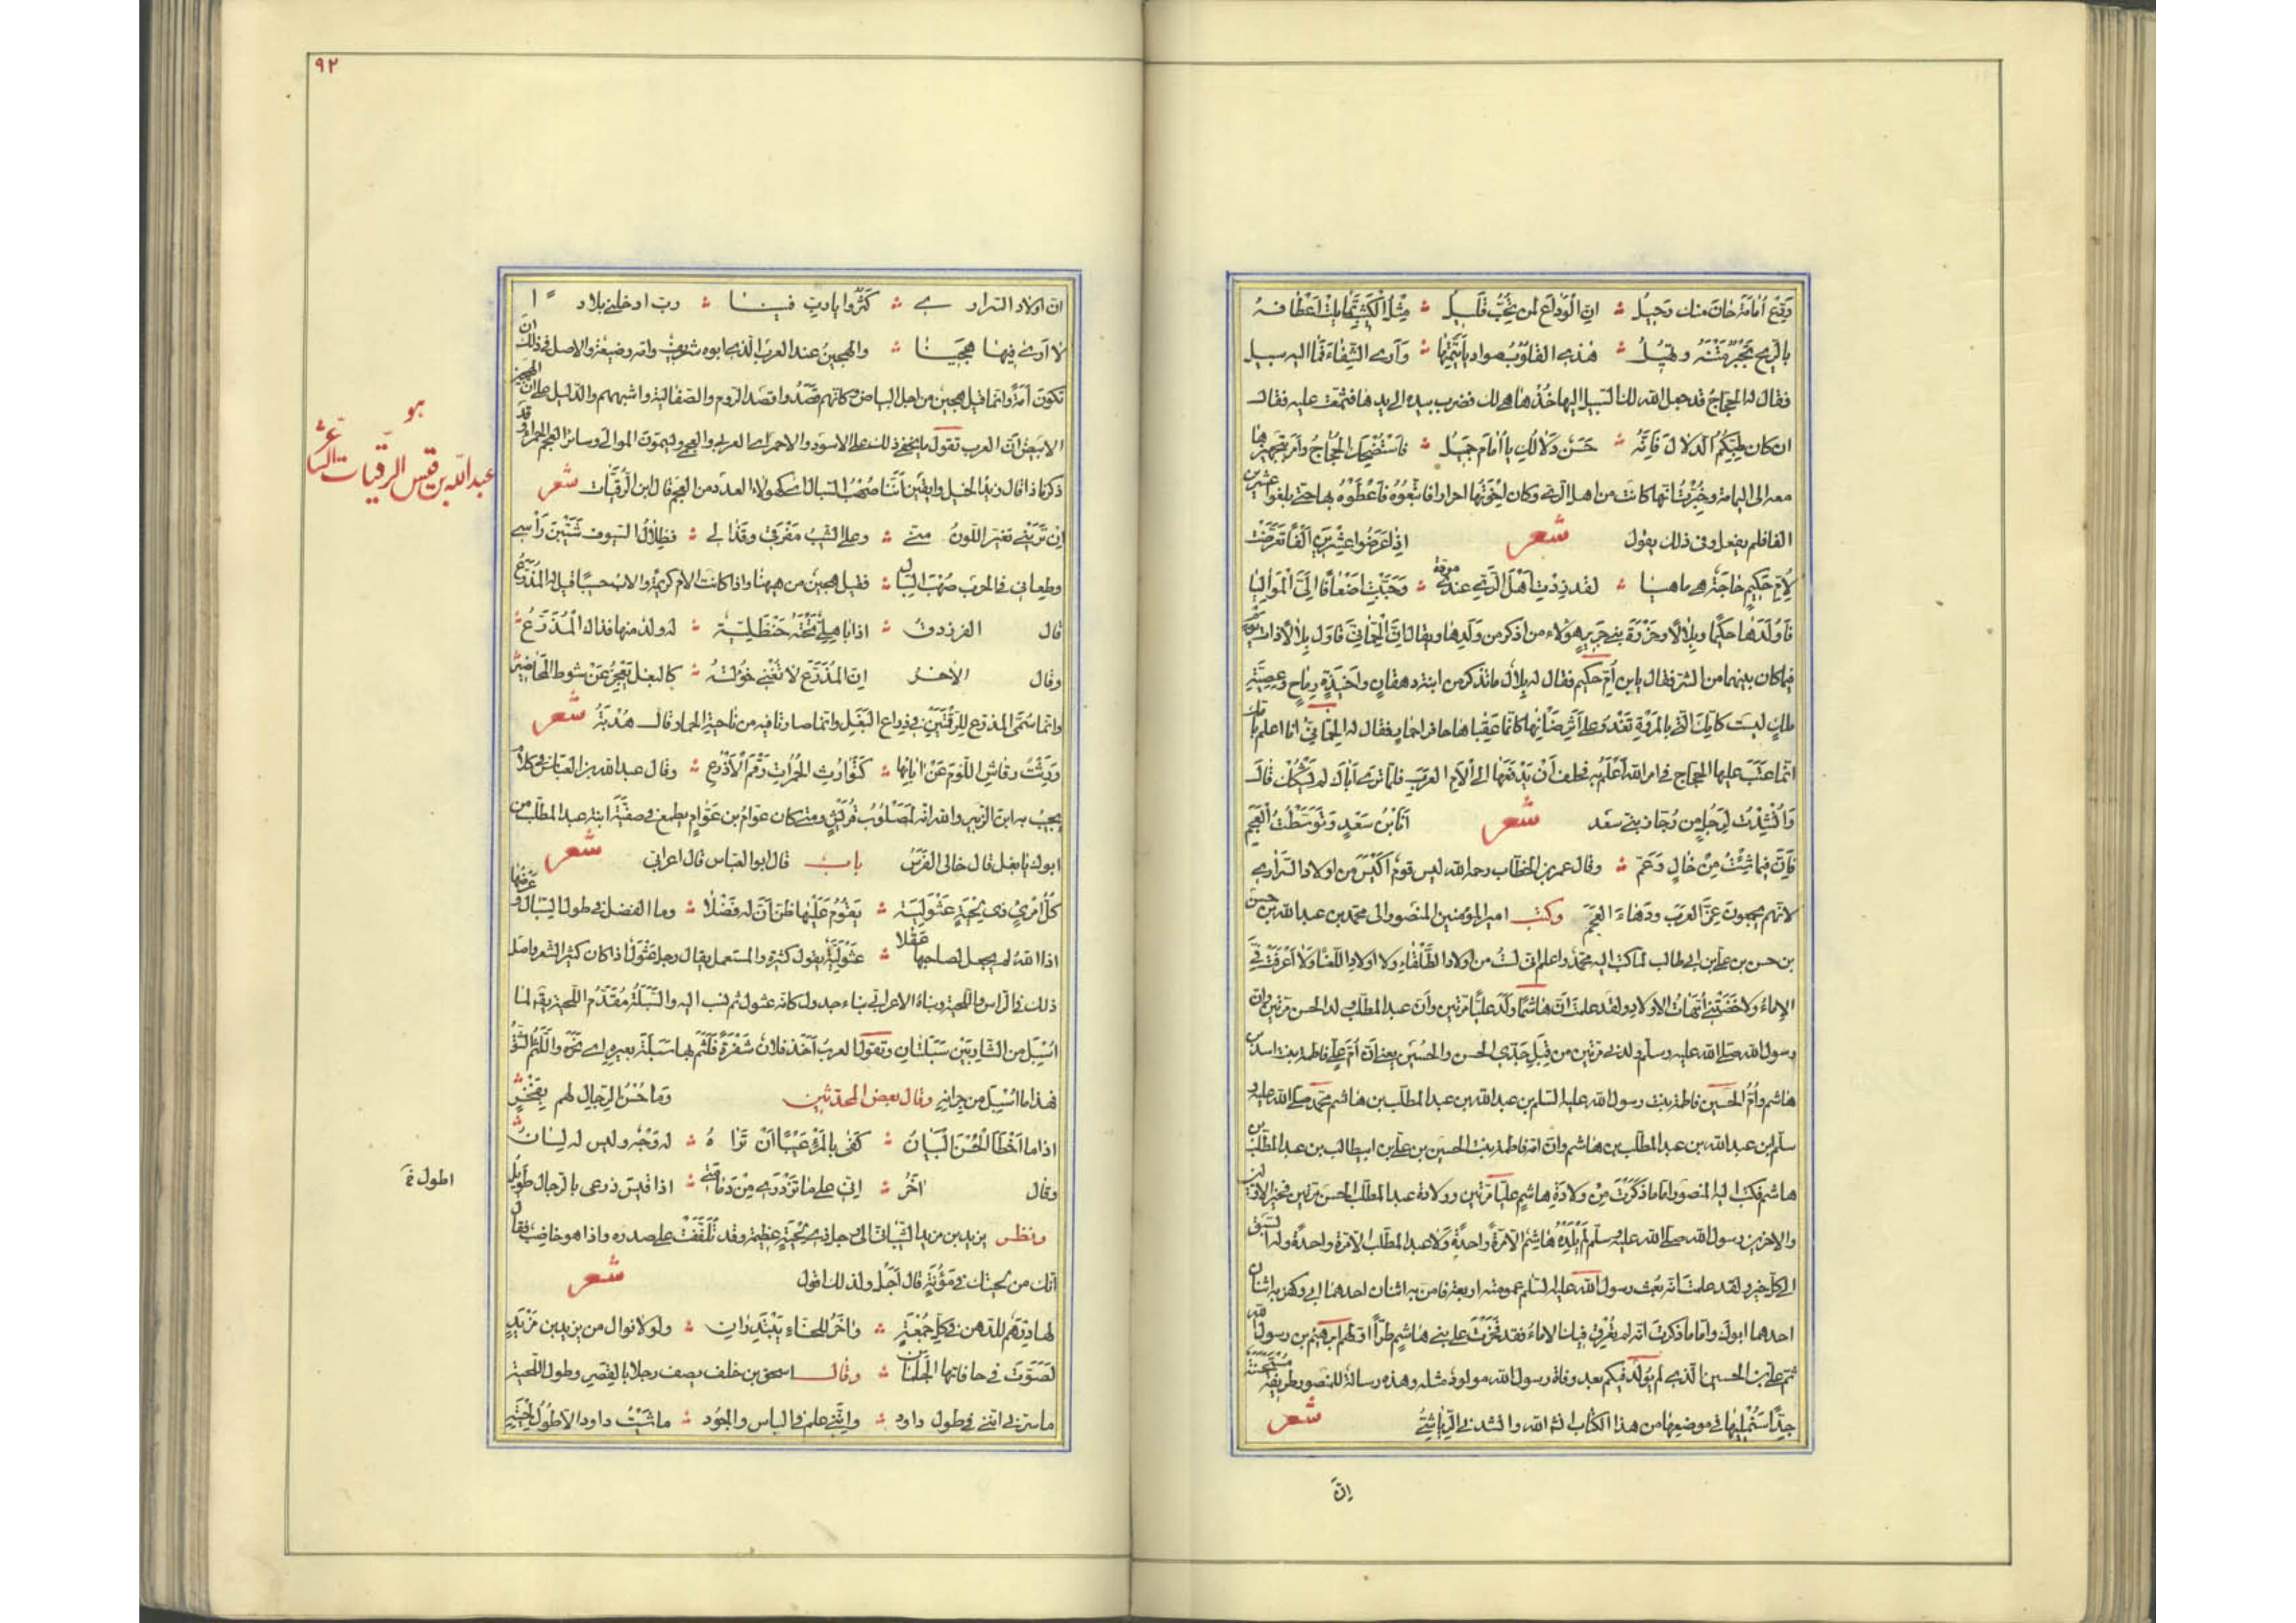 وَدِّعْ أُمامَةَ حانَ منك رَحِيلُ ؞ اِنّ الْوَداعَ لمن تُحِبُّ قَلِيلُ ؞ مِثْلُ الْكَثِيبِ تمايلت اَعْطافُهُ
بالرّيح تَجْبُرُ مَتْنَهُ وتَهِيلُ ؞ هٰذِى القلوبُ صواديا تَيَّمْتِها ؞ وَاَرى الشِّفاءَ وَمَا اليه سبيل
فقال له الحجّاجُ قد جعل الله لك السّبيل اليها خُذْها هى لك فضرب بيده الى يدها فتمنّعت عليه فقال
ان كان طِبَّكُمُ الدلال فَاِنَّهُ ؞ حَسَنٌ دَلالُكِ يا أُمامَ جَمِيلُ ؞ فاسْتَضْحَكَ الحجّاجُ وأمر بتجهيزها
معه الى اليمامة وخُبِّرْتُ انها كانت من اهل الرىّ وكان إخْوَتُها احرارا فاتبعُوهُ فأَعْطَوْهُ بها حتّى بلغوا عشرين
الفا فلم يفعل وفى ذلك يقول شعر اِذا عَرَضُوا عِشْرِينَ اَلْفًا تَعَرَّضَتْ
لِاُمِّ حَكِيمٍ حاجَةٌ هى ماهيا ؞ لقد زِدْتِ اَهْلَ الرَّىِّ عندى مودّة ؞ وَحَبَّبْتِ اَضْعافًا اِلَىَّ الْمَوالِيا
فأَوْلَدَها حكيمًا وبِلالًا وحَزْرَةَ بنى جَرِيرٍ هؤلاء من اذكر من وَلَدِها ويقال اِنّ الْحِمّانِىَّ قاوَلَ بِلالًا ذات يوم
فيما كان بينهما من الشر فقال يا بن أُمِّ حكيم فقال له بِلالٌ ما تذكر من ابنة دهقانٍ واَخِيذَةِ رِماحٍ وعَطِيَّةِ
مَلِكٍ ليست كأمّك الّتى بالمَرُّوتِ تَغْدُو على أَثَرِ ضَأْنِها كانّما عَقِباها حافرا حمار فقال له الحمّانىّ انا اعلم بامّك
انّما عَتَبَ عليها الحجّاج فى امر الله أَعْلَمُ به فحلف أَنْ يَدْفَعَها الى اَلْأَمِ العرب فلمّا رأى أباك لم يَشْكُكْ قال
وَاُنْشِدْتُ لِرَجُلٍ من رُجّاز بنى سَعْد شعر اَنَا بْنُ سَعْدٍ وَتَوَسَّطْتُ الْعَجَمْ
فَاَنَا فيما شِئْتُ مِنْ خالٍ وَعَمْ ؞ وقال عمر بن الخطّاب رحمه الله ليس قومٌ اَكْيَسَ من اولاد السَّرارى
لانّهم يجمعون عِزَّ العرب ودَهاءَ العَجَم وكتب امير المؤمنين المنصور الى محمّد بن عبد الله بن حسن
بن حسن بن على بن ابى طالب لمّا كتب اليه محمّد واعلم انّى لست من اولاد الطُّلَقاءِ ولا اولاد اللُّعَناءِ ولا اَعْرَقَتْ فِىَّ
الإماءُ ولا حَضَنَتْنِى أُمّهاتُ الاولاد ولقد علمت انّ هاشمًا وَلَدَ عليًّا مرّتين وأنّ عبد المطّلب ولد الحسن مرّتين وانّ
رسول الله صلّى الله عليه وسلّم ولدنى مرّتين من قِبَلِ جَدَّىَّ الحسن والحُسَين يعنى انّ أمّ علىّ فاطمة بنت اسد بن
هاشم وأُمّ الحسين فاطمة بنت رسول الله عليه السّلم بن عبد الله بن عبد المطلب بن هاشم محمّد صلّى الله عليه و
سلّم بن عبد الله بن عبد المطلب بن هاشم وانّ امّه فاطمة بنت الحسين بن على بن ابيطالب بن عبد المطّلب بن
هاشم فكتب اليه المنصور امّا ما ذَكَرْتَ مِنْ ولادَةِ هاشِمٍ عليًّا مرّتين وولادة عبد المطّلب الحسن مرّتين فخير الاوّلين
والاخرين رسول الله صلّى الله عليه وسلّم لَمْ يَلِدْهُ هاشِمٌ الّا مرّةً واحدةً ولا عبد المطّلب الّا مرّة واحدةً وله السَّبق
الى كلّ خير ولقد علمت انّه بُعث رسول الله عليه السّلم وعمومته اربعة فامن به اثنان احدهما ابى وكفر به اثنان
احدهما ابوك وامّا ما ذكرت انّه لم تُعْرِقْ فيك الاماءُ فقد فَخَرْتَ على بنى هاشمٍ طُرًّا اوّلهم ابرهيم بن رسول الله
ثمّ على بن الحسين الّذى لم يُولَدْ فيكم بعد وفاة رسول الله مولودٌ مثله وهذه رسالة للمنصور طريفة مُسْتَحْسَنَة
جدًّا سَنُمْلِيها فى موضعها من هذا الكتاب انشاالله وانشدنى الرِّياشِىُّ شعر
اِنّ
٩٢
انّ اولاد السرار ى ؞ كَثُروا يا ربّ فينا ؞ ربّ ادخلنى بلاد ا
لا اَرى فيها هَجِينا ؞ والهجينُ عند العرب الّذى ابوه شريفٌ وامّه وضيعة والاصل فى ذلك ان
تكون أمَةً وانّما قيل هجين من اجل البياض وكانّهم قَصَدُوا قَصْدَ الروم والصّقالبة واشبههم والدّليل على ان الهجين
الابيضُ انّ العرب تقول ما يخفى ذلك على الاسود والاحمر اى العربى والعجمى ويسمّون الموالى وسائر العجم الحمراء وقد
ذكرنا ذا قال زيد الخيل وايقن أنّنا صُهْبُ السّبال اى كهؤلاء العدوّ من العجم قال ابن الرُّقَيّات شعر
اِنْ تَرَيْنى تغيّر اللّونُ منّى ؞ وعلى الشّيبُ مَفْرِقى وقَذالى ؞ فظِلالُ السّيوف شَيَّبْنَ رَأْسِى
وطِعانى فى الحرب صُهْبَ السِّبال ؞ فقيل هجين من ههنا واذا كانت الام كريمةً والاب خسيسًا قيل له المُذَرَّعُ
قال الفرزدق ؞ اذا باهِلِىٌّ تَحْتَهُ حَنْظَلِيّة ؞ له ولد منها فذاك الْمُذَرَّعُ
وقال الآخر اِنّ المُذَرَّعَ لا تُغْنِى خُؤُولَتُهُ ؞ كالبغل يَعْجِزُ عَنْ شوط المَحاضِيرِ
وانّما سُمّى المذرّع للرَّقْمَتَيْنِ فى ذراع البَغْلِ وانّما صارتا فيه من ناحية الحمار قال هُدْبَةُ شعر
وَرِثَتْ رقاشِ اللُّؤْمَ عَنْ اٰبائِها ؞ كَتَوارُثِ الحُمُراتِ رَقْمَ الأَذْرُعِ ؞ وقال عبد الله بن العبّاس فى كلام
يجيب به ابن الزّبير والله انّه لَمَصْلُوبُ قُرَيْشٍ ومتى كان عوامُ بن عَوّامٍ يطمع فى صفيّة ابنة عبد المطّلب من
ابوك يا بغل قال خالى الفَرَسُ باب قال ابو العبّاس قال اعرابى شعر
كُلُّ امْرِئٍ ذى لِحْيَةٍ عَثْوَلِيَّة ؞ يقومُ عَلَيْها ظَنّ أنّ له فَضْلًا ؞ وما الفضل فى طول السّبال وعَرْضِها
اذا اللهُ لم يجعل لصاحبها عَقْلا ؞ عَثْوَلِيَّة يقول كثيرة والمستعمل يقال رجل عَثْوَلٌ اذا كان كثير الشّعر واصل
ذلك فى الرّأس واللّحية وبناهُ الاعرابى بناء جدول كانه عثول ثم نسب اليه والسَّبَلَةُ مُقَدَّمُ اللّحية يقال لما
اُسْبِلَ من الشّارِبَيْن سَبَلَتان وتقول العرب أَخَذ فلانٌ شَفْرَةً فَلَتَمَ بها سَبَلَة بعيره اى نَحَرَ واللَّتْمُ الشّقُّ
فهذا ما اُسْبِلَ من جِرانِهِ وقال بعض المحدثين وما حُسْنُ الرِّجال لهم بِفَخْرٍ
اذا ما اَخْطَأَ الْحُسْنَ الْبَيانُ ؞ كَفٰى بالمَرْءِ عَيْبًا اَنْ تَرا هُ ؞ له وَجْهٌ وليس له لِسانُ
وقال اٰخَرُ ؞ اِنّى على ما تَزْدَرِى مِنْ دَمامَتِى ؞ اذا قِيسَ ذرعى بالرّجال طَوِيلُ
ونظر يزيد بن مزيد الشّيبانىّ الى رجل ذى لِحْيَةٍ عظيمة وقد تَلَفَّفَتْ على صدره واذا هو خاضِبٌ فقال
انّك من لحيتك فى مَؤُنَةٍ قال أَجَلْ ولذلك اقول شعر
لها دِرْهَمٌ للدّهن فى كلّ جُمْعَةٍ ؞ وٰاخَرُ للحنّاء يَبْتَدِرانِ ؞ ولولا نوال من يزيد بن مَزْيَدٍ
لَصَوَّتَ فى حافاتها الجَلَمانِ ؞ وقال اسحق بن خلف يصف رجلا بالقِصَرِ وطول اللّحية
ما سرّنى انّنى فى طول داود ؞ وانّنى علم فى الباس والجُود ؞ ماشَيْتُ داود
هو
عبد الله بن قيس الرقيّات الشاعر
اطول